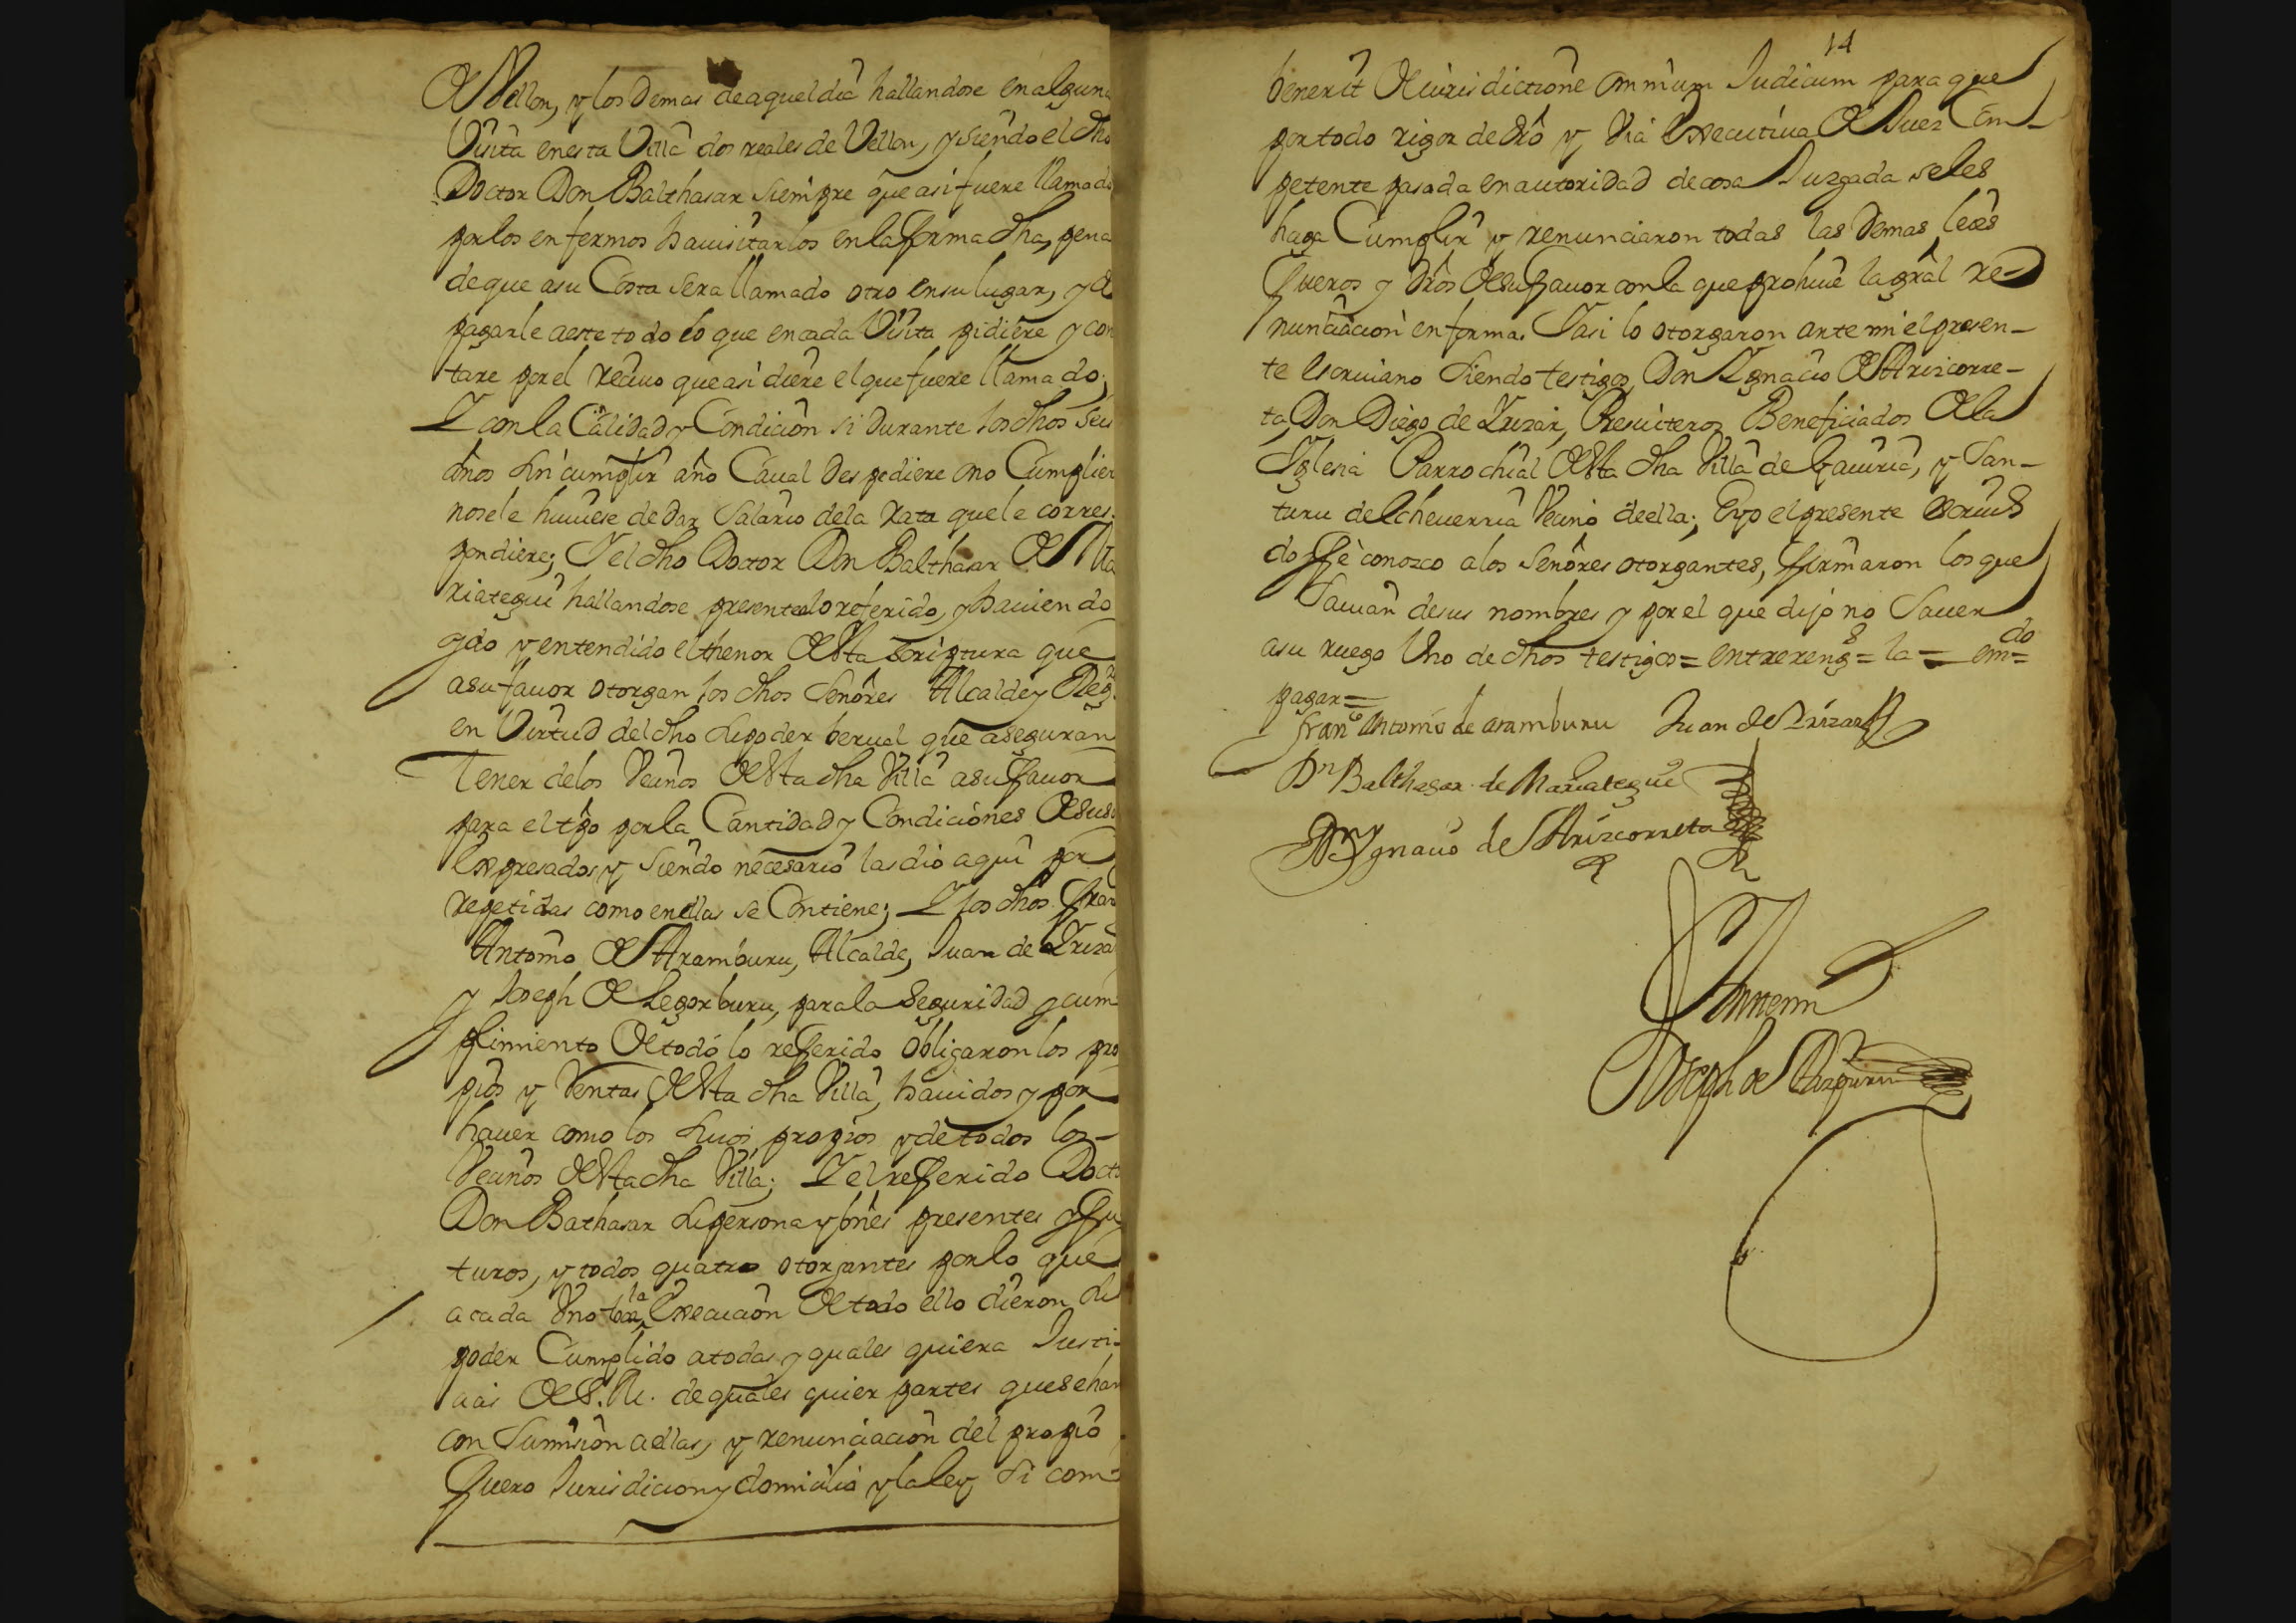 de Vellon, y los Demas de aquel dia hallandose en alguna
Visita en esta Villa dos reales de Vellon, y siendo el dho
Doctor Don Balthasar siempre que asi fuere llamado
por los enfermos ha visitarlos en la forma dha, pena
de que asu Costa sera llamado otro en su lugar, y de
pagarle a este todo lo que en cada Visita pidiere y con
tare por el reciuo que asi diere el que fuere llamado;
Y con la Calidad y Condicion si durante los dhos seis
años sin cumplir año Caual despediere o no Cumpliere
no se le huuiese de dar Salario de la rata que le corres
pondiere; Y el dho Doctor Don Balthasar de Ma
riategui hallandose presente a lo referido, y hauiendo
oydo y entendido el thenor de esta scriptura que
a su fauor otorgan los dhos Señores Alcalde y Reg.
en Virtud del dho su poder berual que aseguran
tener de los Vecinos de esta dha Villa a su fauor
para el tpo por la Cantidad y Condiciones de suso
Expresados y siendo necesario las dio aqui por
repetidas como en ellas se Contiene; Y los dhos Fran
Antonio de Aramburu, Alcalde, Juan de Yrizar
y Joseph de Legorburu, para la Seguridad y cum
plimiento de todo lo referido obligaron los pro
pios y Rentas de esta dha Villa, hauidos y por
hauer como los suios propios y de todos los
Vecinos de esta dha Villa; Y el referido Doctor
Don Bathasar su persona y bnēs presentes y fu
turos, y todos quatro otorgantes por lo que
a cada Vno toca la Execucion de todo ello dieron su
poder Cumplido a todas y quales quiera Justi-
cias de S. M. de quales quier partes que sehan
con Sumision a ellas, y renunciacion del propio
fuero Jurisdicion y domicilio y la ley si com-
14
benerit de iurisdictione omnium Judicum para que
por todo rigor de dro y Via Executiua de Juez Com-
petente pasada en autoridad de cosa Juzgada se les
haga Cumplir y renunciaron todas las Demas leies
fueros y dros de su fauor con la que prohiue la gral re-
nunciacion en forma. Y asi lo otorgaron ante mi el presen-
te Escriuano siendo testigos Don Ygnacio de Arizcorre-
ta, Don Diego de Yrizar, Presuiteros Beneficiados de la
Yglesia Parrochial de esta dha Villa de Gauiria, y San-
turu de Echeuerria Vecino de ella; E yo el presente Escriuo
doy fe conozco a los Señores otorgantes, firmaron los que
Sauian de sus nombres y por el que dijo no Sauer
a su ruego Uno de dhos testigos = entrereng.s = la = em.do =
pagar =
Fran.co Antonio de aramburu Juan de Yrizar
Dn Balthasar de Mariategui
Dn Ygnacio de Arizcorreta
Ante mi
Joseph de Aizpuru